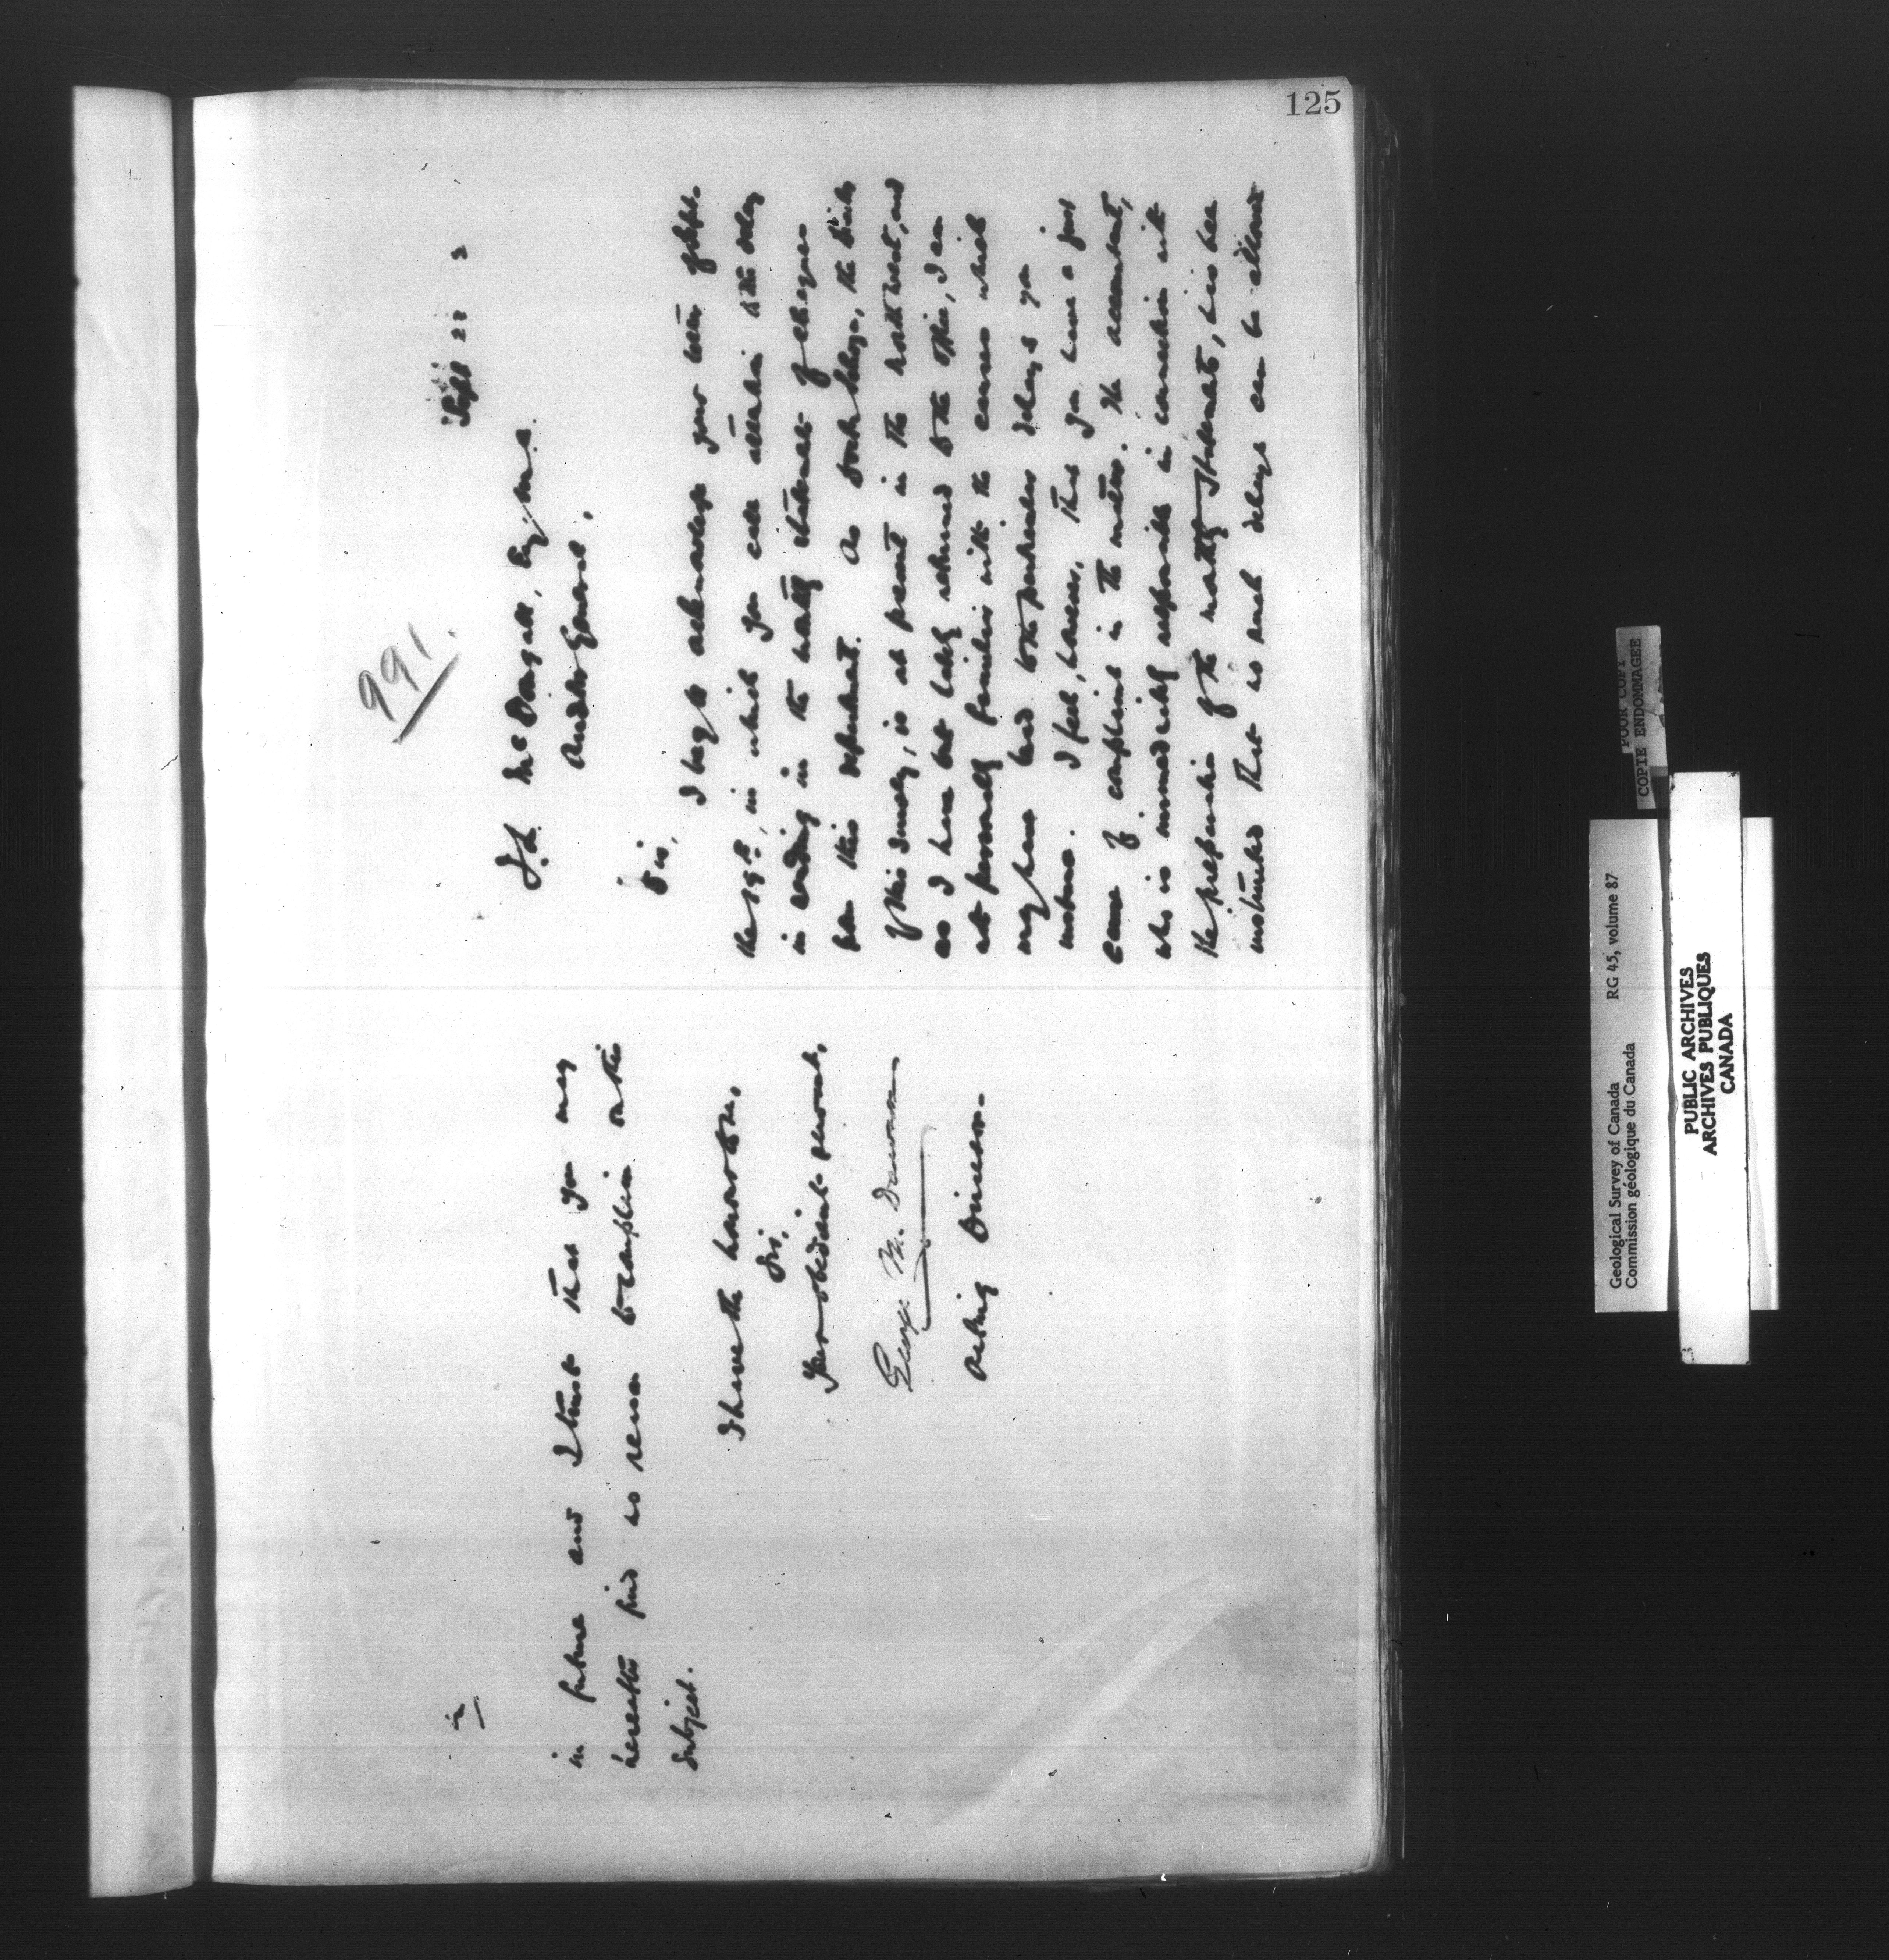 125
991.
Sept 22
J. L. McDougall, Esq. M.A.
Auditor General.
Sir,
I beg to acknowledge your letter of Sept.
the 19th, in which you call attention to the delay
in sending in the monthly statement of cheques
from this department. As Doctor Selwyn, the Director
of this Survey, is at present in the North West, and
as I have but lately returned to the office, I am
not personally familiar with the causes which
may have led to the particular delays you
instance. I feel, however, that you have a just
cause of complaint in the matter. The accountant,
who is immediately responsible in connection with
the preparation of the monthly statements, has been
instructed that no such delays can be allowed
in future and I trust that you may
hereafter find no reason to complain on this
subject.
I have the honor to be,
Sir,
Your obedient servant,
George M. Dawson
Acting Director.
POOR COPY
COPIE ENDOMMAGEE
Geological Survey of Canada RG 45, volume 87
Commission géologique du Canada
PUBLIC ARCHIVES
ARCHIVES PUBLIQUES
CANADA